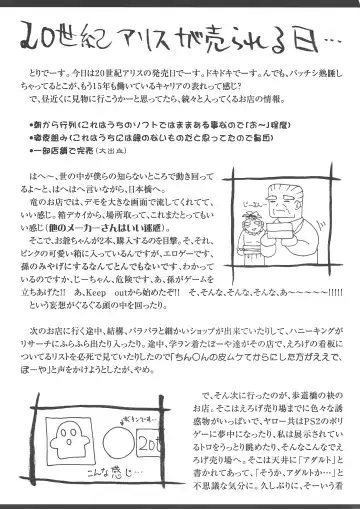 20世紀アリスが売られる日…
とりでーす。今日は20世紀アリスの発売日でーす。ドキドキでーす。んでも、バッチシ熟睡し
ちゃってるとこが、もう15年も働いているキャリアの表れって感じ?
で、昼近くに見物に行こうかーと思ってたら、続々と入ってくるお店の情報。
●朝から行列(これはうちのソフトではままある事なので「ホ〜」程度)
●一部店舗で完売(大出血)
はへ〜、世の中が僕らの知らないところで動き回って
るよ〜と、はへはへ言いながら、日本橋へ。
竜のお店では、デモを大きな画面で流してくれてて、
いい感じ。箱デカイから、場所取って、これまたとってもい
い感じ(他のメーカーさんはいい迷惑)。
そこで、お爺ちゃんが2本、購入するのを目撃。そ、それ、
ピンクの可愛い箱に入っているんですが、エロゲーです。
孫のみやげにするなんてとんでもないです、わかって
いるのですか、じーちゃん、危険です、あ、孫がゲームを
立ちあげた!! あ、Keep outから始めたぞ!! そ、そんな、そんな、そんな、あ〜〜〜〜〜!!!!!
という妄想がぐるぐる頭の中を回ったり。
次のお店に行く途中、結構、バラバラと細かいショップが出来ていたりして、ハニーキングが
リサーチにふらふら出たり入ったり。途中、学ラン着たぼーや達がその店で、えろげの看板に
ついてるリストを必死で見ていたりしたので「ちん○んの皮ムケてからにした方がええで、
ぼーや」と声をかけようとしたが、やめ。
で、そん次に行ったのが、歩道橋の袂の
お店。そこはえろげ売り場まで色々な誘
惑物がいっぱいで、ヤロー共はPS2のポリ
ゲーに夢中になったり、私は展示されてい
るトロをうっとり眺めたり、そんなこんなでえ
ろげ売り場へ。そこは天井に「アダルト」と
書かれてあって、「そうか、アダルトか…」と
不思議な気分に。久しぶりに、そーいう着
こんな感じ…